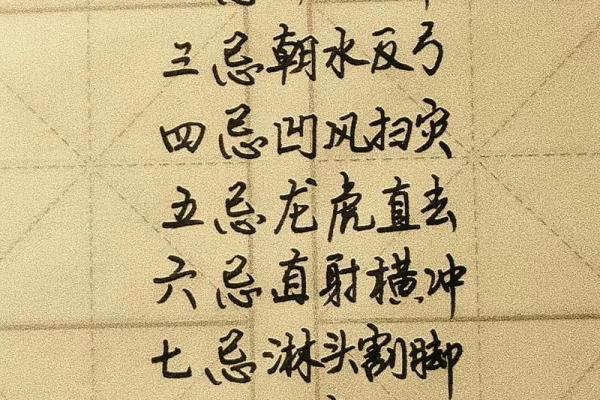 三忌朝水反弓
四忌凹风扫灾
五忌龙虎直去
六忌直射横冲
七忌淋头割脚